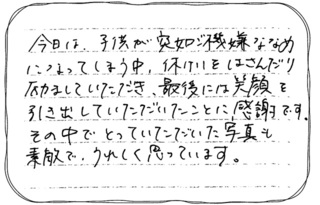 今日は、子供が突如ご機嫌ななめ
になってしまう中、休けいをはさんだり
励ましていただき、最後には笑顔を
引き出していただいたことに感謝です。
その中でとっていただいた写真も
素敵で、うれしく思っています。